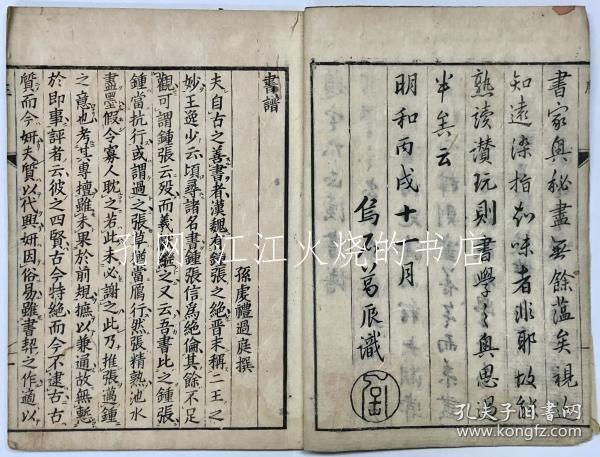 書家奧秘盡無餘蘊矣視以
知遠染指知味者非耶故能
熟讀賛玩則書學之奧思過
半矣云
明和丙戌十一月
烏石葛辰識
書譜
孫虔禮過庭撰
夫自古之善書者漢魏有鍾張之絶晉末稱二王之
妙王逸少云頃尋諸名書鍾張信爲絶倫其餘不足
觀可謂鍾張云殁而羲獻繼之又云吾書比之鍾張
鍾當抗行或謂過之張草猶當鴈行然張精熟池水
盡墨假令寡人耽之若此未必謝之此乃推張邁鍾
之意也考其專擅雖未果於前規摭以兼通故無慙
於即事評者云彼之四賢古今特絶而今不逮古古
質而今妍夫質以代興妍因俗易雖書契之作適以
孔网 江江火烧的书店
孔夫子旧书网
www.kongfz.com